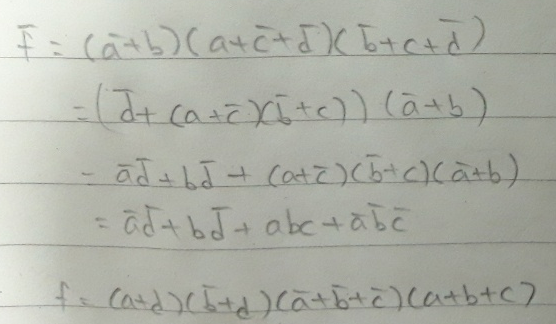 f̅ = (a̅+b)(a+c̅+d̅)(b̅+c+d̅)
=(d̅+(a+c̅)(b̅+c))(a̅+b)
= a̅d̅+bd̅+(a+c̅)(b̅+c)(a̅+b)
= a̅d̅+bd̅+abc+a̅b̅c̅
f = (a+d)(b̅+d)(a̅+b̅+c̅)(a+b+c)